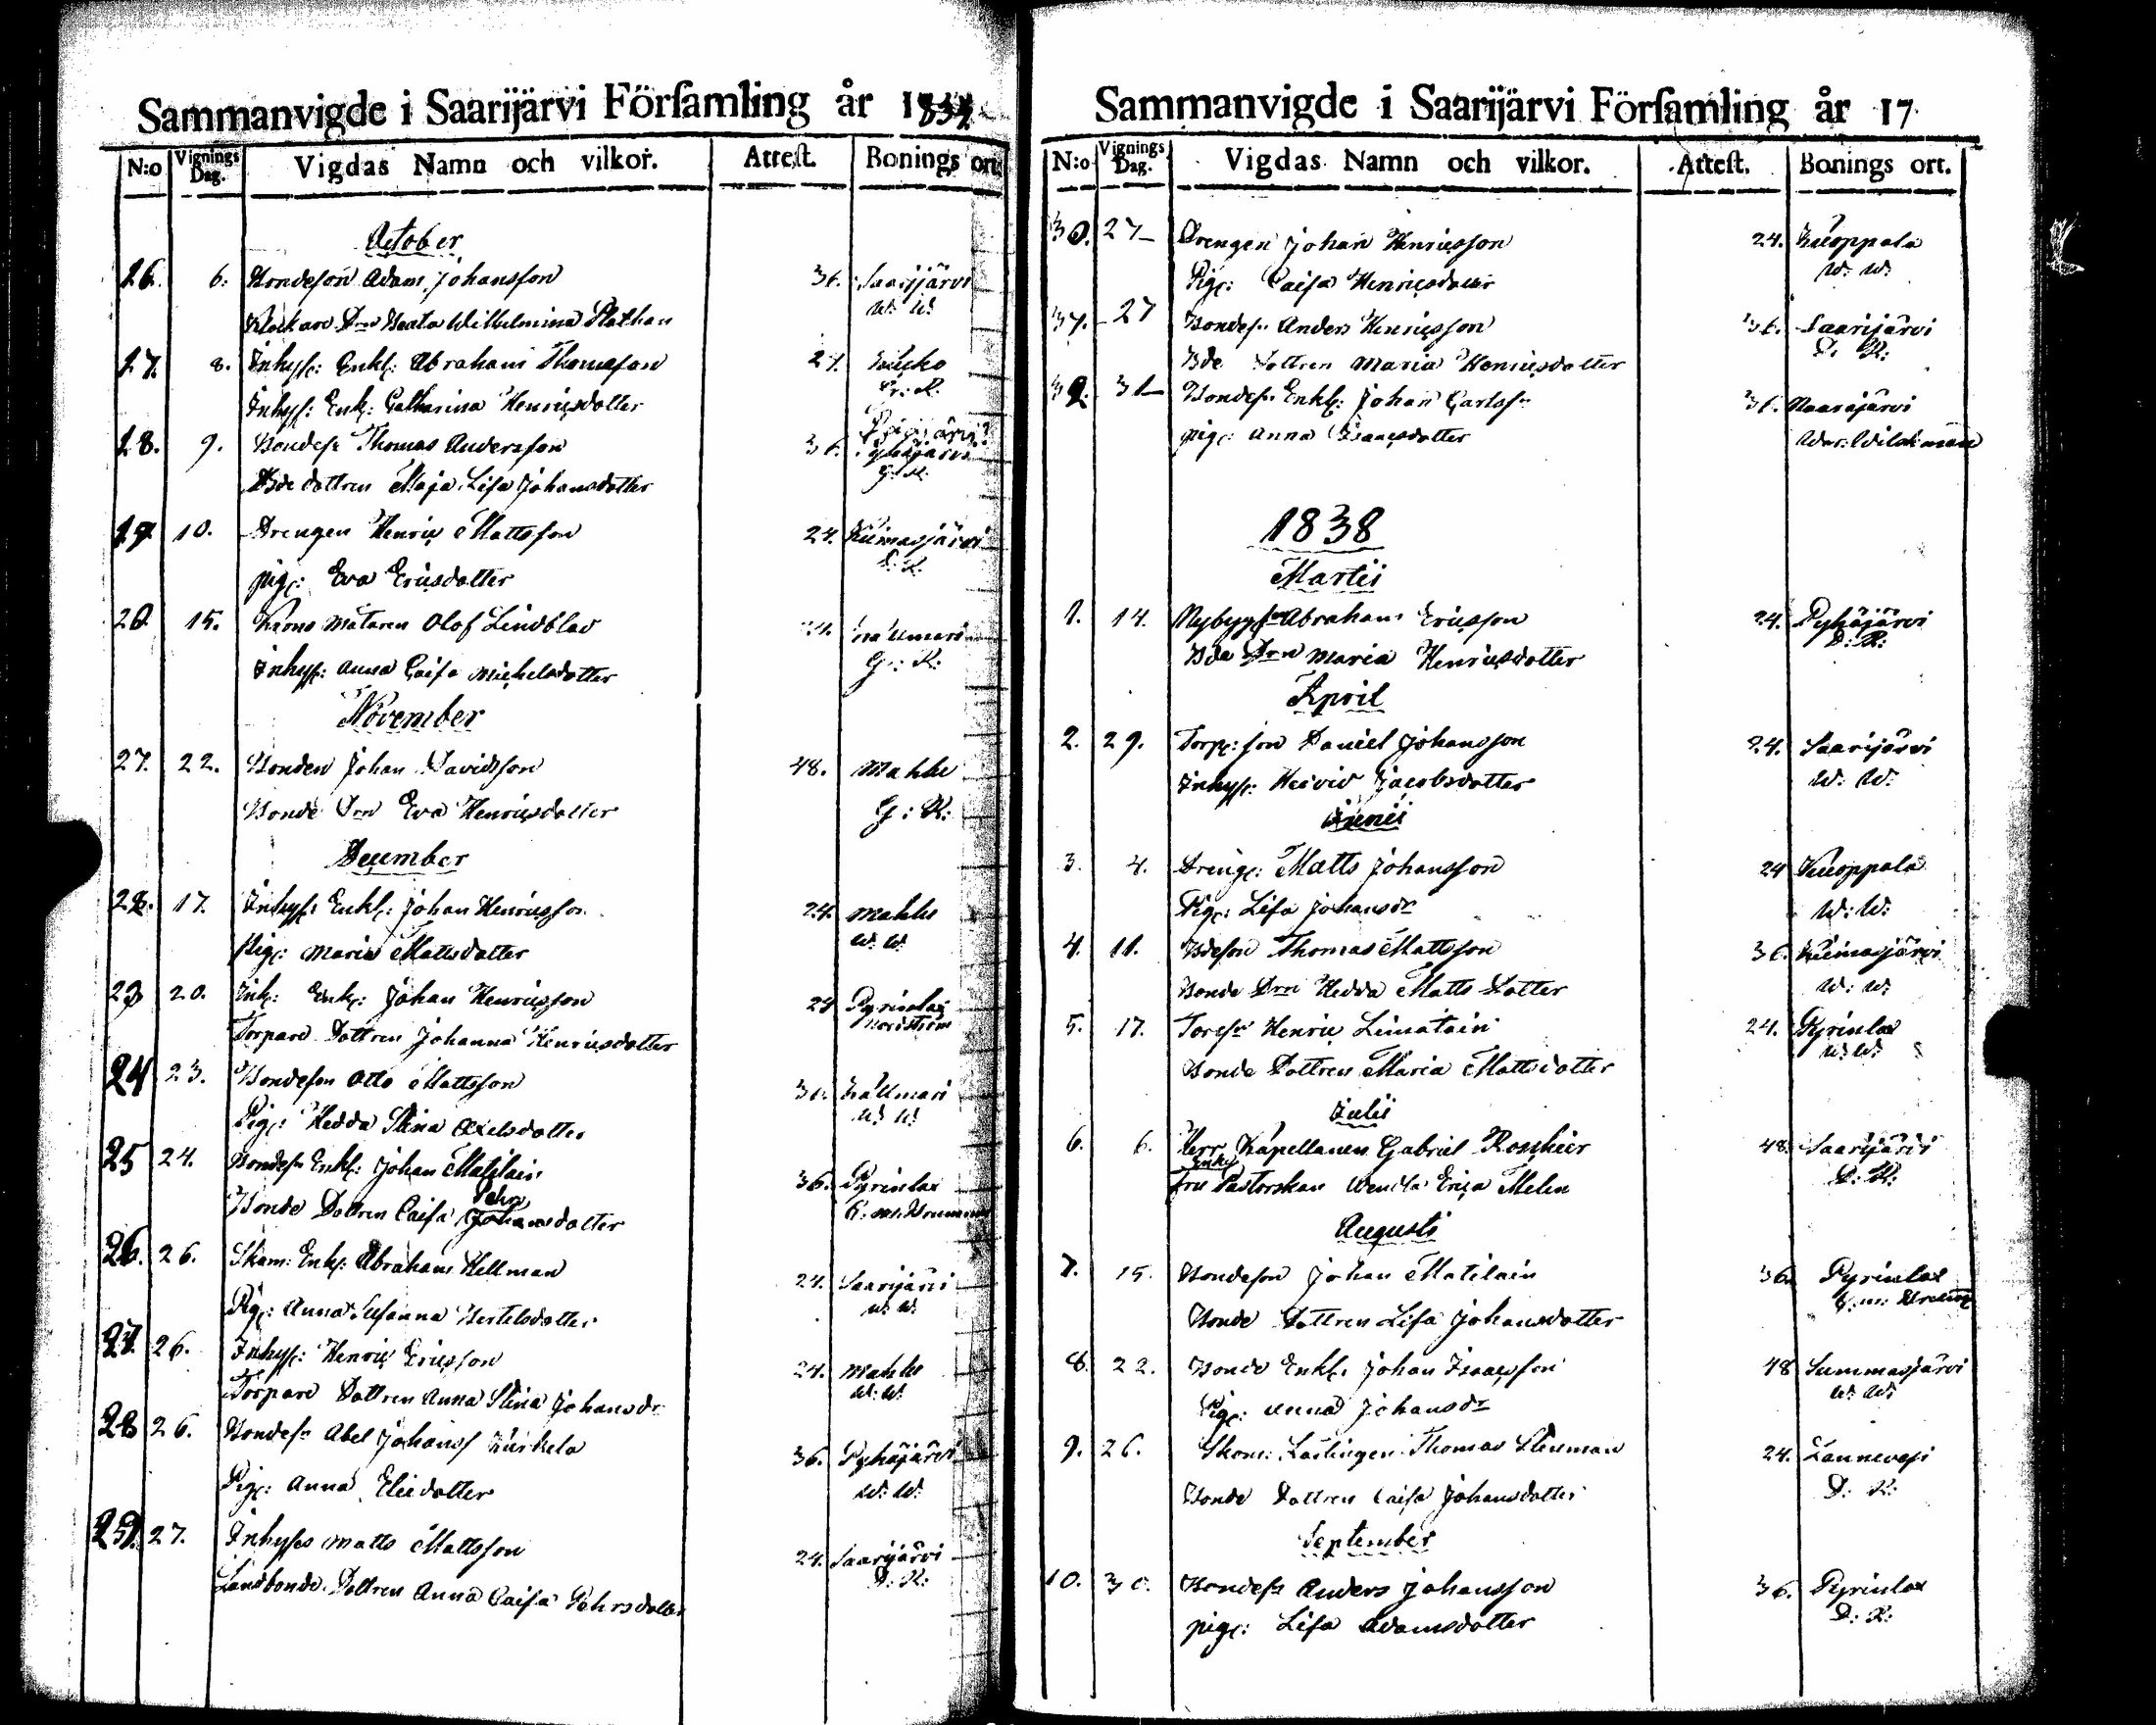 Sammanvigde i Saarijärvi Förſamling år 1834
N:o Vignings Dag. Vigdas Namn och vilkor. Atteſt. Bonings ort.
October
16. 6. Bondeson Adam Johansson 36. Saarijärvi
Klockare Drn Beata Wilhelmina Plathan W: W:
17. 8. Inhys: Enkl: Abraham Thomasson 24.
Inhys: Enk: Catharina Henricsdotter
18. 9. Bondes: Thomas Andersson 36. Pyhäjärvi
Bde dottren Maja Lisa Johansdotter G: R:
19. 10. Drengen Henric Mattsson 24. Kiimasjärvi
pig: Eva Ericsdotter
20. 15. Krono Mataren Olof Lindblad 24. Kallmari
Inhys: Anna Caisa Michelsdotter G: R:
November
27. 22. Bonden Johan Davidsson 48. Mahlu
Bonde Drn Eva Henricsdotter G: R:
December
22. 17. Inhys: Enkl: Johan Henricsson 24. Mahlu
Pig: Maria Mattsdotter W: W:
23 20. Inh: Enkl: Johan Henricsson 24 Pyrinlax
Torpare Dottren Johanna Henricsdotter Nordström
24 23. Bondeson Otto Mattsson 36. Kallmari
Pig: Hedda Stina Axelsdotter W: W:
25 24. Bondes: Enkl: Johan Matilain 36. Pyrinlax
Pehrs
Bonde Dottren Caisa Johansdotter
26. 26. Skom: Enkl: Abraham Hellman 24. Saarijärvi
Pig: Anna Susanna Bertelsdotter W: W:
27. 26. Inhys: Henric Ericsson 24. Mahlu
Torpare Dottren Anna Stina Johansdr W: W:
28 26. Bondesn Abel Johanss Kurkela 36. Pyhäjärvi
Pig: Anna Eliedotter W: W:
29. 27. Inhyses Matts Mattsson 24. Saarijärvi
Landbonde Dottren Anna Caisa Pehrsdotter D: R:
Sammanvigde i Saarijärvi Förſamling år 17
N:o Vignings Dag. Vigdas Namn och vilkor. Atteſt. Bonings ort.
30. 27 Drengen Johan Henricsson 24. Kuoppala
Pig: Caisa Henricsdotter W: W:
31. 27 Bondes: Anders Henricsson 36. Saarijärvi
Bde Dottren Maria Henricsdotter D: R:
32. 31 Bondes: Enkl: Johan Carlssn 36. Naarajärvi
pig: Anna Isaacsdotter
1838
Martii
1. 14. Nybyggsn Abraham Ericsson 24. Pyhäjärvi
Bde Drn Maria Henricsdotter D: R:
April
2. 29. Torp: son Daniel Johansson 24. Saarijärvi
Inhys: Hedvid Jacobsdotter W: W:
Junii
3. 4. Dreng: Matts Johansson 24 Kuoppala
Pig: Lisa Johansdr W: W:
4. 11. Bdeson Thomas Mattsson 36. Kiimasjärvi
Bonde Drn Hedda Matts Dotter W: W:
5. 17. Torpsn Henric Limatain 24. Pyrinlax
Bonde Dottren Maria Mattsdotter W: W:
Julii
6. 6. Herr Kapellanen Gabriel Roschier 48. Saarijärvi
Enkf
Fru Pastorskan Wendla Erica Melen D: R:
Augusti
7. 15. Bondeson Johan Matilain 36. Pyrinlax
Bonde Dottren Lisa Johansdotter
8. 22. Bonde Enkl: Johan Isaacsson 48 Summasjärvi
Pig: Anna Johansdr W: W:
9. 26. Skom: Lärlingen Thomas Stenman 24. Lannevesi
Bonde Dottren Caisa Johansdotter D: R:
September
10. 30. Bondesn Anders Johansson 36. Pyrinlax
pig: Lisa Adamsdotter D: R: